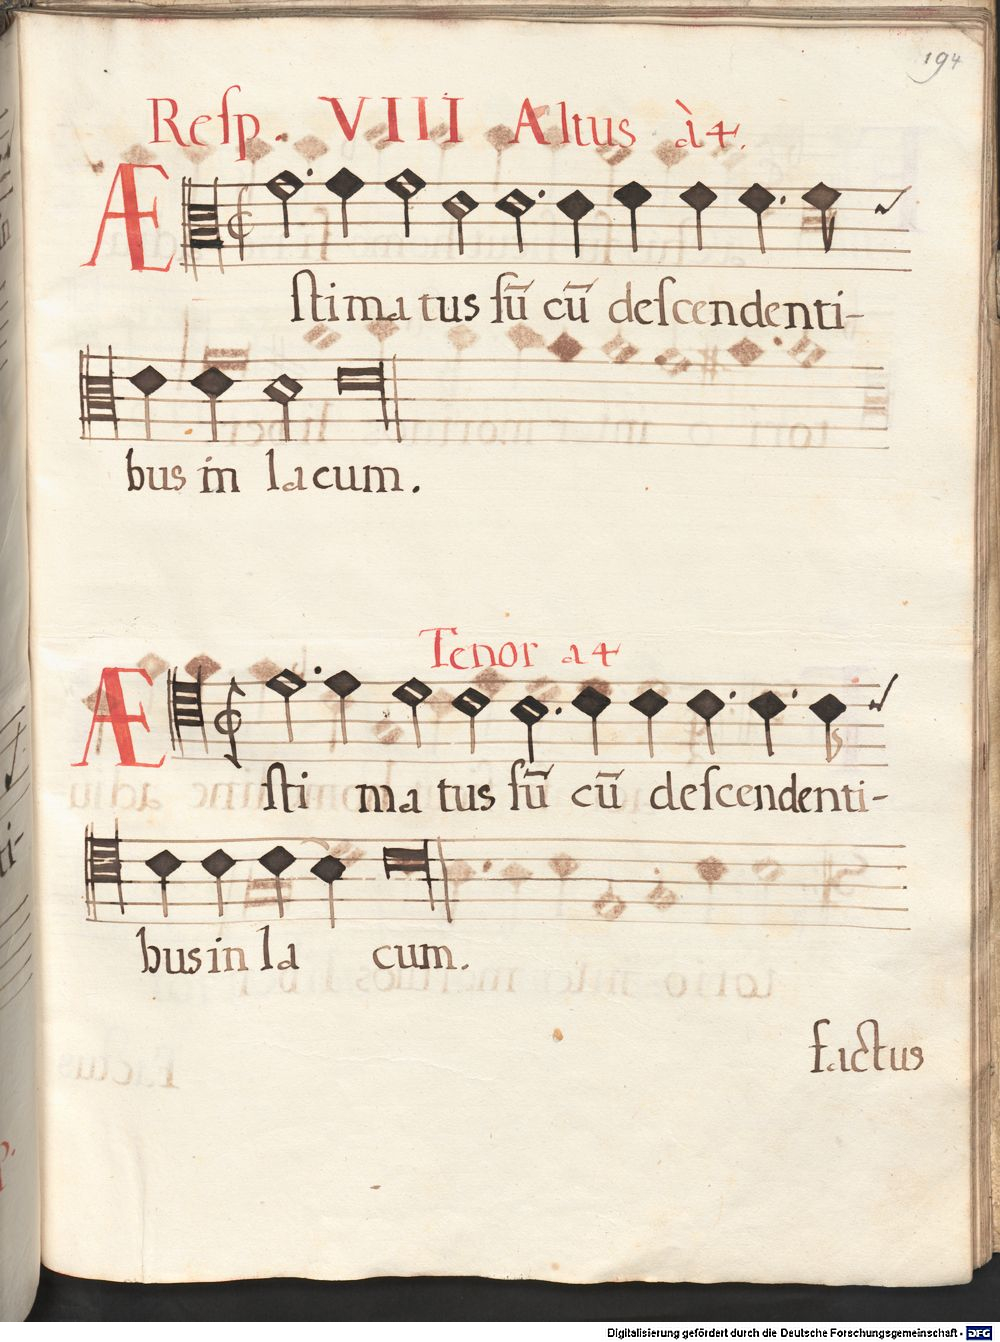 194
Reſp. VIII Altus à4.
Æ
ſtimatus ſū cū deſcendenti-
bus in lacum.
Tenor a4
Æ
ſti ma tus ſū cū deſcendenti-
bus in la cum.
factus
Digitalisierung gefördert durch die Deutsche Forschungsgemeinschaft - DFG